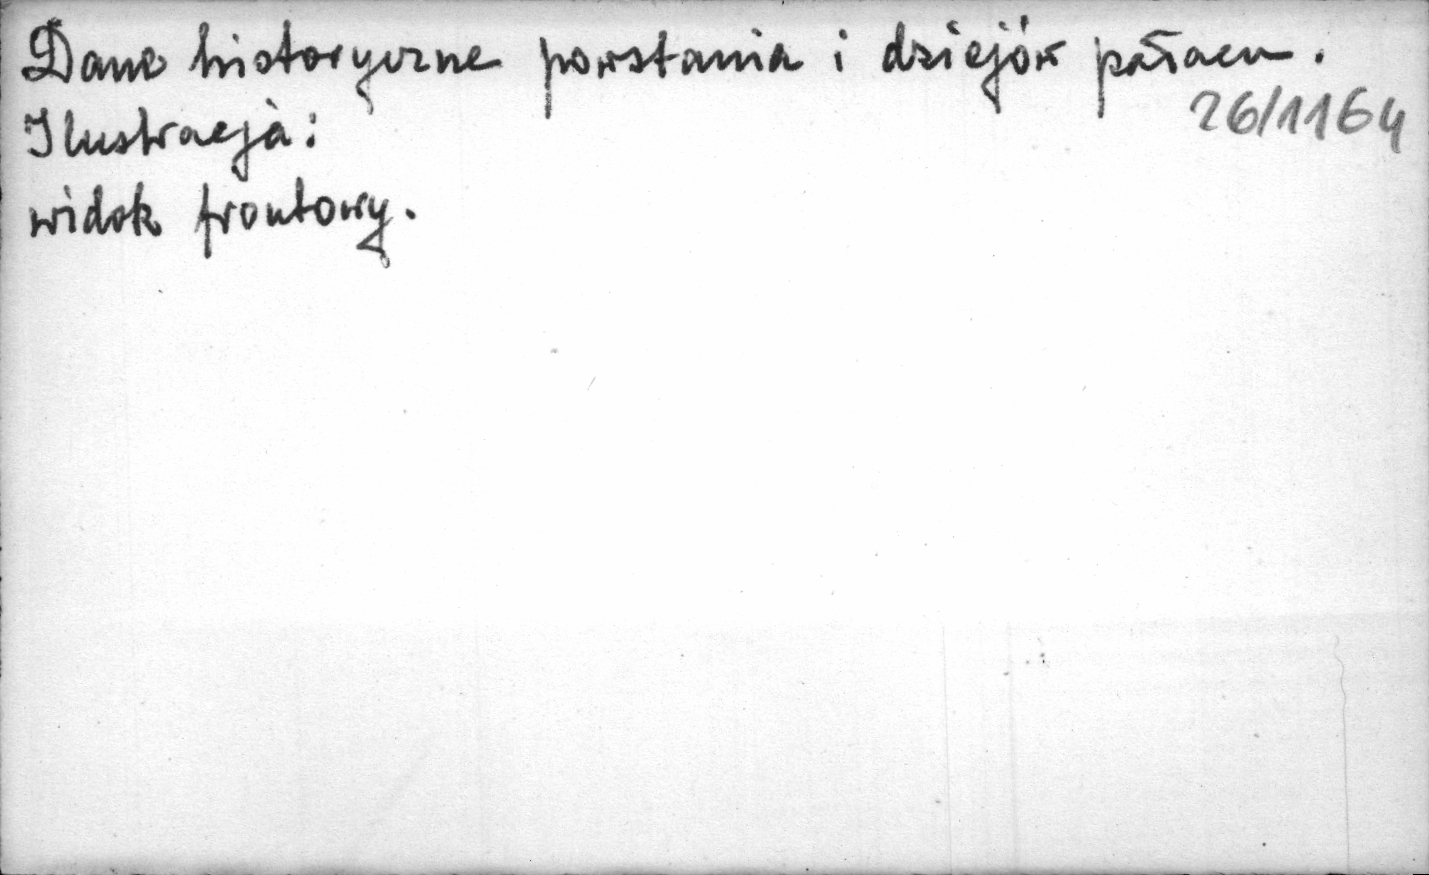 Dane historyczne powstania i dziejów pałacu.
26/1164
Ilustracja:
widok frontowy.